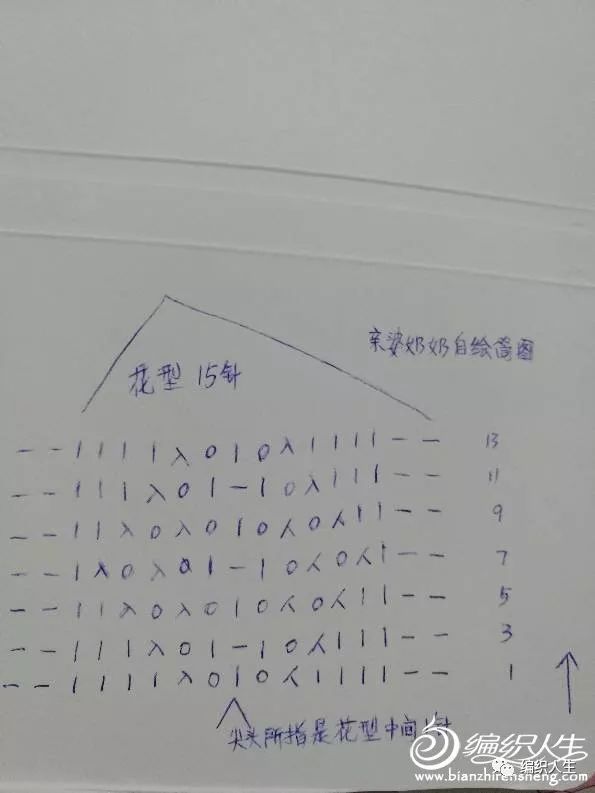 亲婆奶奶自绘简图
花型 15针
- - I I I I 入 O I O 入 I I I I - - 13
- - I I I 入 O I - I O 入 I I I - - 11
- - I I 入 O 入 O I O 人 O 人 I I - - 9
- - I 入 O 入 O I - I O 人 O 人 I - - 7
- - I I 入 O 入 O I O 人 O 人 I I - - 5
- - I I I 入 O I - I O 人 I I I - - 3
- - I I I I 入 O I O 人 I I I I - - 1
尖头所指是花型中间1针
编织人生
编织人生
www.bianzhirensheng.com